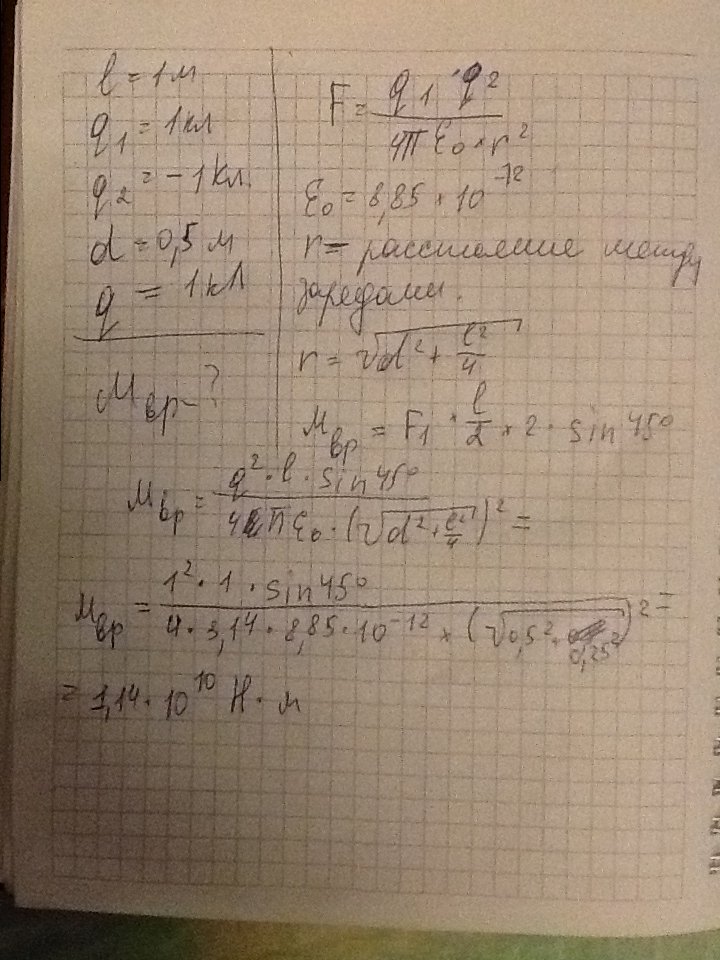 l = 1 м
q1 = 1 кл
q2 = - 1 кл.
d = 0,5 м
q = 1 кл
Mвр - ?
F = q1 · q2 / 4π ε0 × r²
ε0 = 8,85 × 10^-12
r - расстояние между
зарядами.
r = √(d² + l²/4)
Mвр = F1 × l/2 × 2 · sin 45°
Mвр = q² · l · sin 45° / 4π ε0 · (√(d² + l²/4))² =
Mвр = 1² · 1 · sin 45° / 4 · 3,14 · 8,85 · 10^-12 × (√(0,5² + 0,25²))² =
= 1,14 · 10^10 Н · м